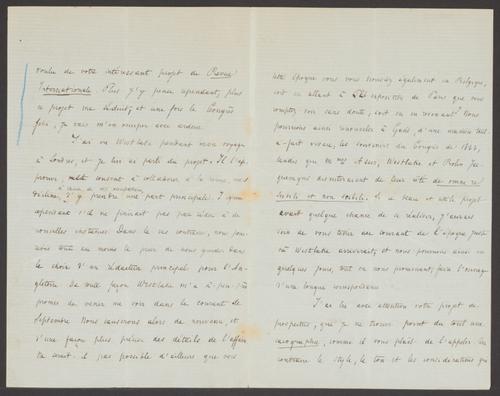 voulu de votre intéressant projet de Revue
Internationale. Plus j'y pense cependant, plus
ce projet me séduit, et une fois le Congrès
fini, je vais m'en occuper avec ardeur.
J'ai vu Westlake pendant mon voyage
à Londres, et je lui ai parlé du projet. Il l'ap-
prouve, consent à collaborer à la revue, mais
décline, d'y prendre une part principale. J'ignore
à cause de ses occupations
cependant s'il ne finirait pas par céder à de
nouvelles instances. Dans le cas contraire, nous pour-
rions tout au moins le prier de nous guider dans
le choix d'un rédacteur principal pour l'An-
gleterre. De toute façon Westlake m'a à-peu-près
promis de venir me voir dans le courant de
Septembre. Nous causerons alors de nouveau, et
d'une façon plus précise des détails de l'affaire.
Ne serait-il pas possible d'ailleurs que vers
cette époque vous vous trouviez également en Belgique,
soit en allant à l'exposition de Paris que vous
comptez voir sans doute, soit en en revenant? Nous
pourrions ainsi renouveler à Gand, d'une manière tout-
à-fait vivace, les souvenirs du Congrès de 1863,
tandis que Mmes Asser, Westlake et Rolin Jae-
quemyns discuteraient de leur côté de omni re
scibili et non scibili. Si ce beau et utile projet
avait quelque chance de se réaliser, j'aurais
soin de vous tenir au courant de l'époque précise
où Westlake arriverait, et nous pourrions ainsi en
quelques jours, tout en nous promenant, faire l'ouvrage
d'une longue correspondance.
J'ai lu avec attention votre projet de
prospectus, que je ne trouve point du tout une
cacographie, comme il vous plaît de l'appeler. Au
contraire le style, le ton et les considérations que